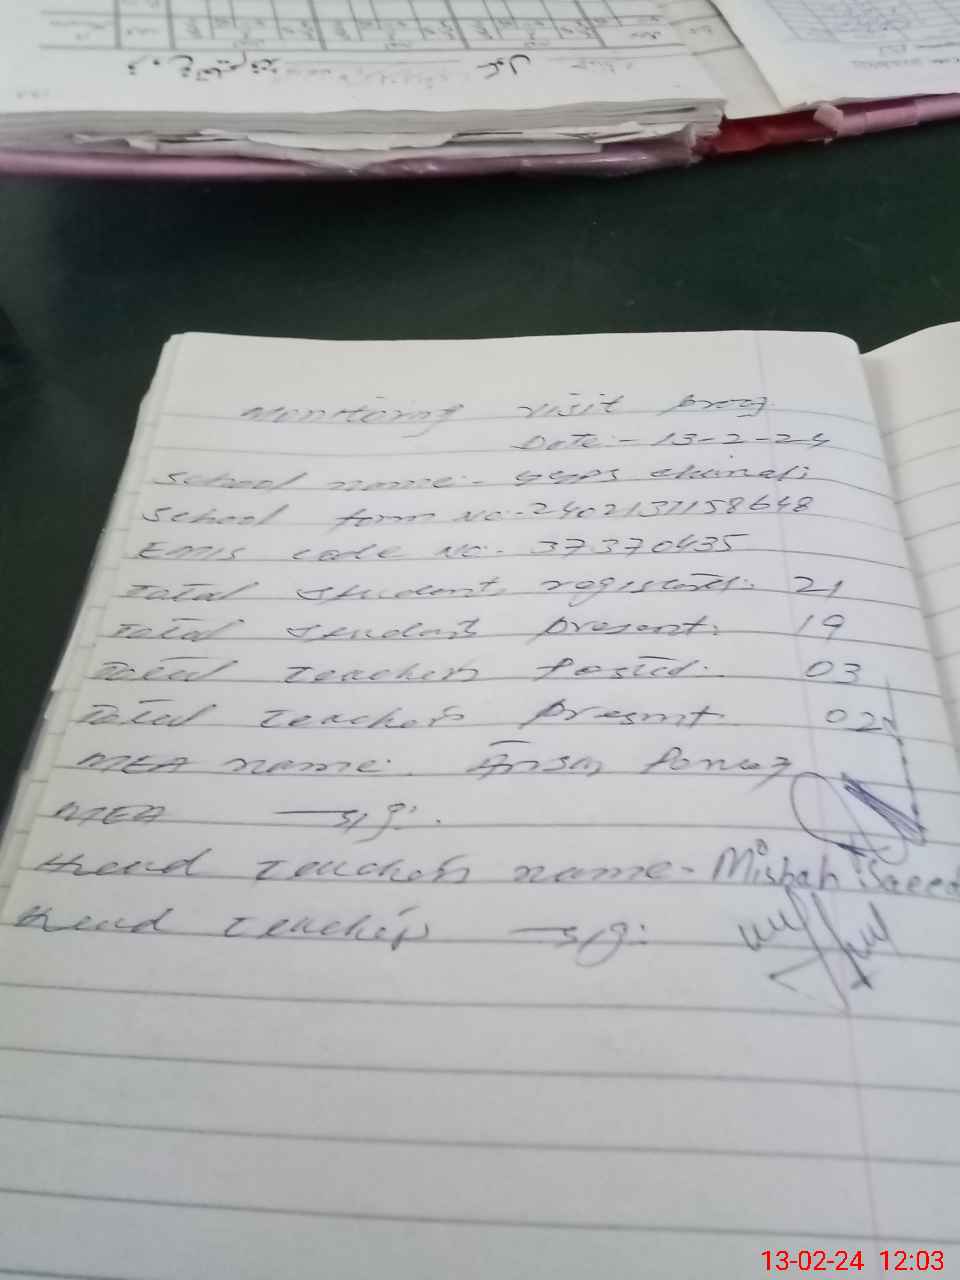 Monitoring visit prog
Date:- 13-2-24
School name:- GGPS
School form No:- 2402137158648
EMIS code No:- 37370435
Total students registered: 21
Total students present: 19
Total teachers posted: 03
Total teachers present 02
MEA name:
MEA sig:
Head teacher name- Misbah Saeed
Head teacher sig:
13-02-24 12:03